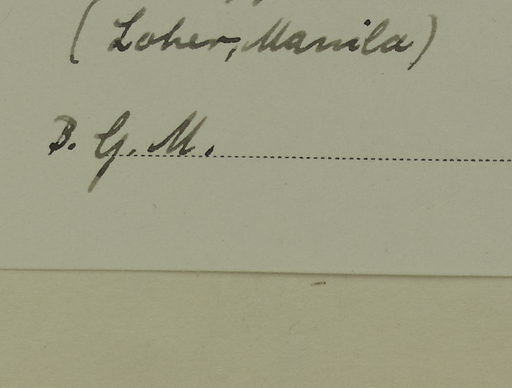 (Loher, Manila)
B. G. M.